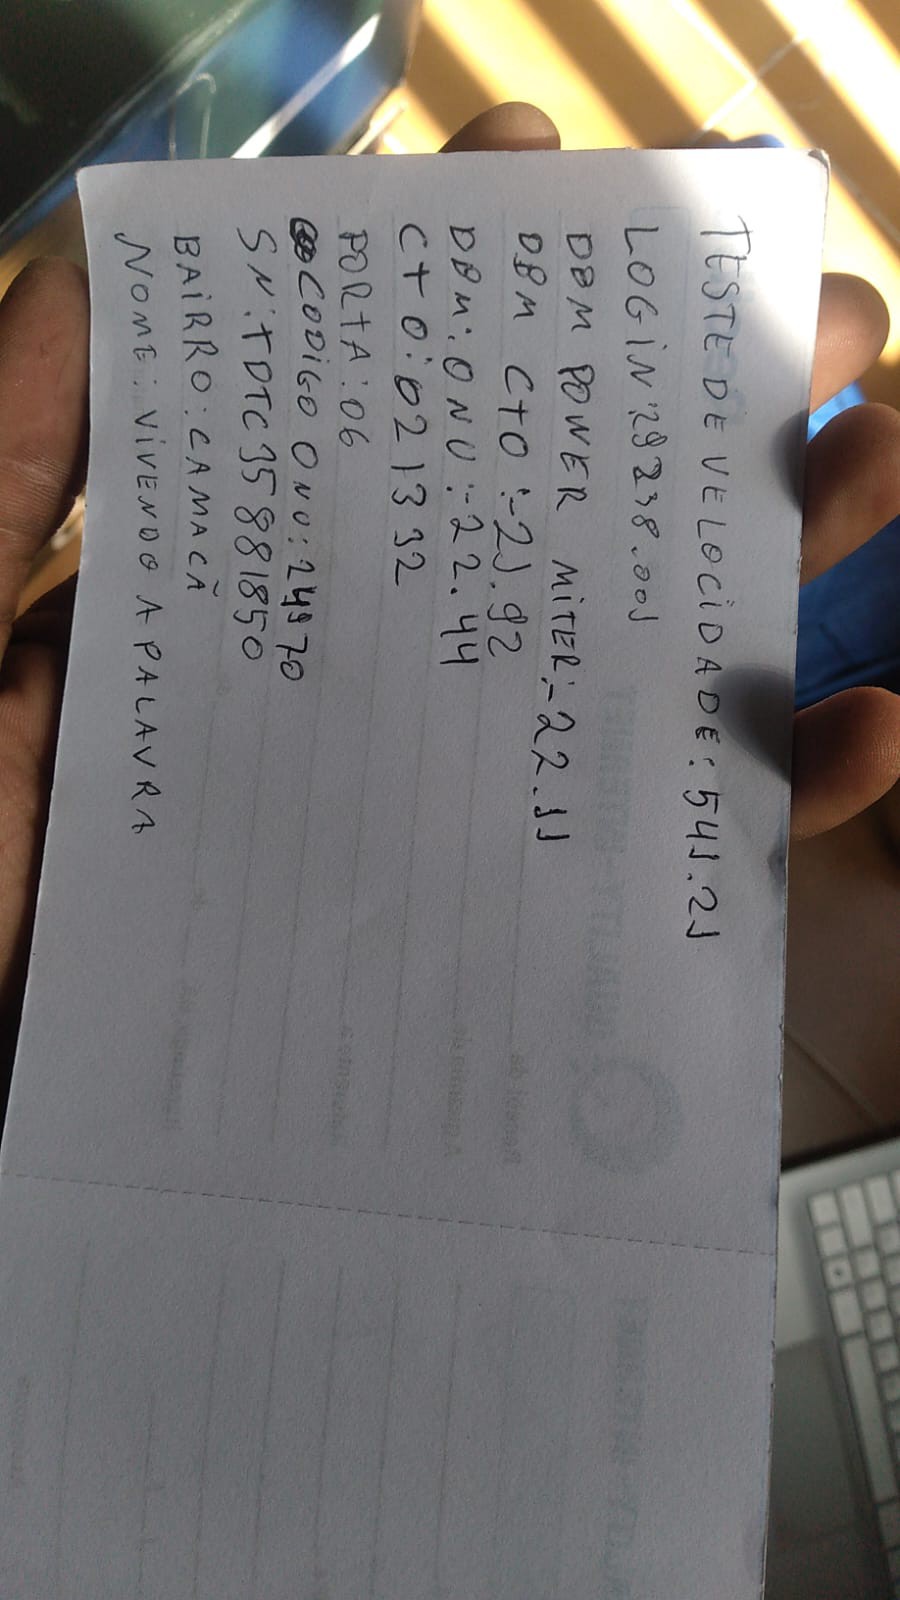 TESTE DE VELOCIDADE: 541.21
LOGIN: 29238.001
DBM POWER MITER:-22.11
DBM CTO:-21.92
DBM: ONU:-22.44
CTO:021332
PORTA:06
CODIGO ONU: 24970
SN:TDTC35881850
BAIRRO: CAMACÃ
NOME: VIVENDO A PALAVRA